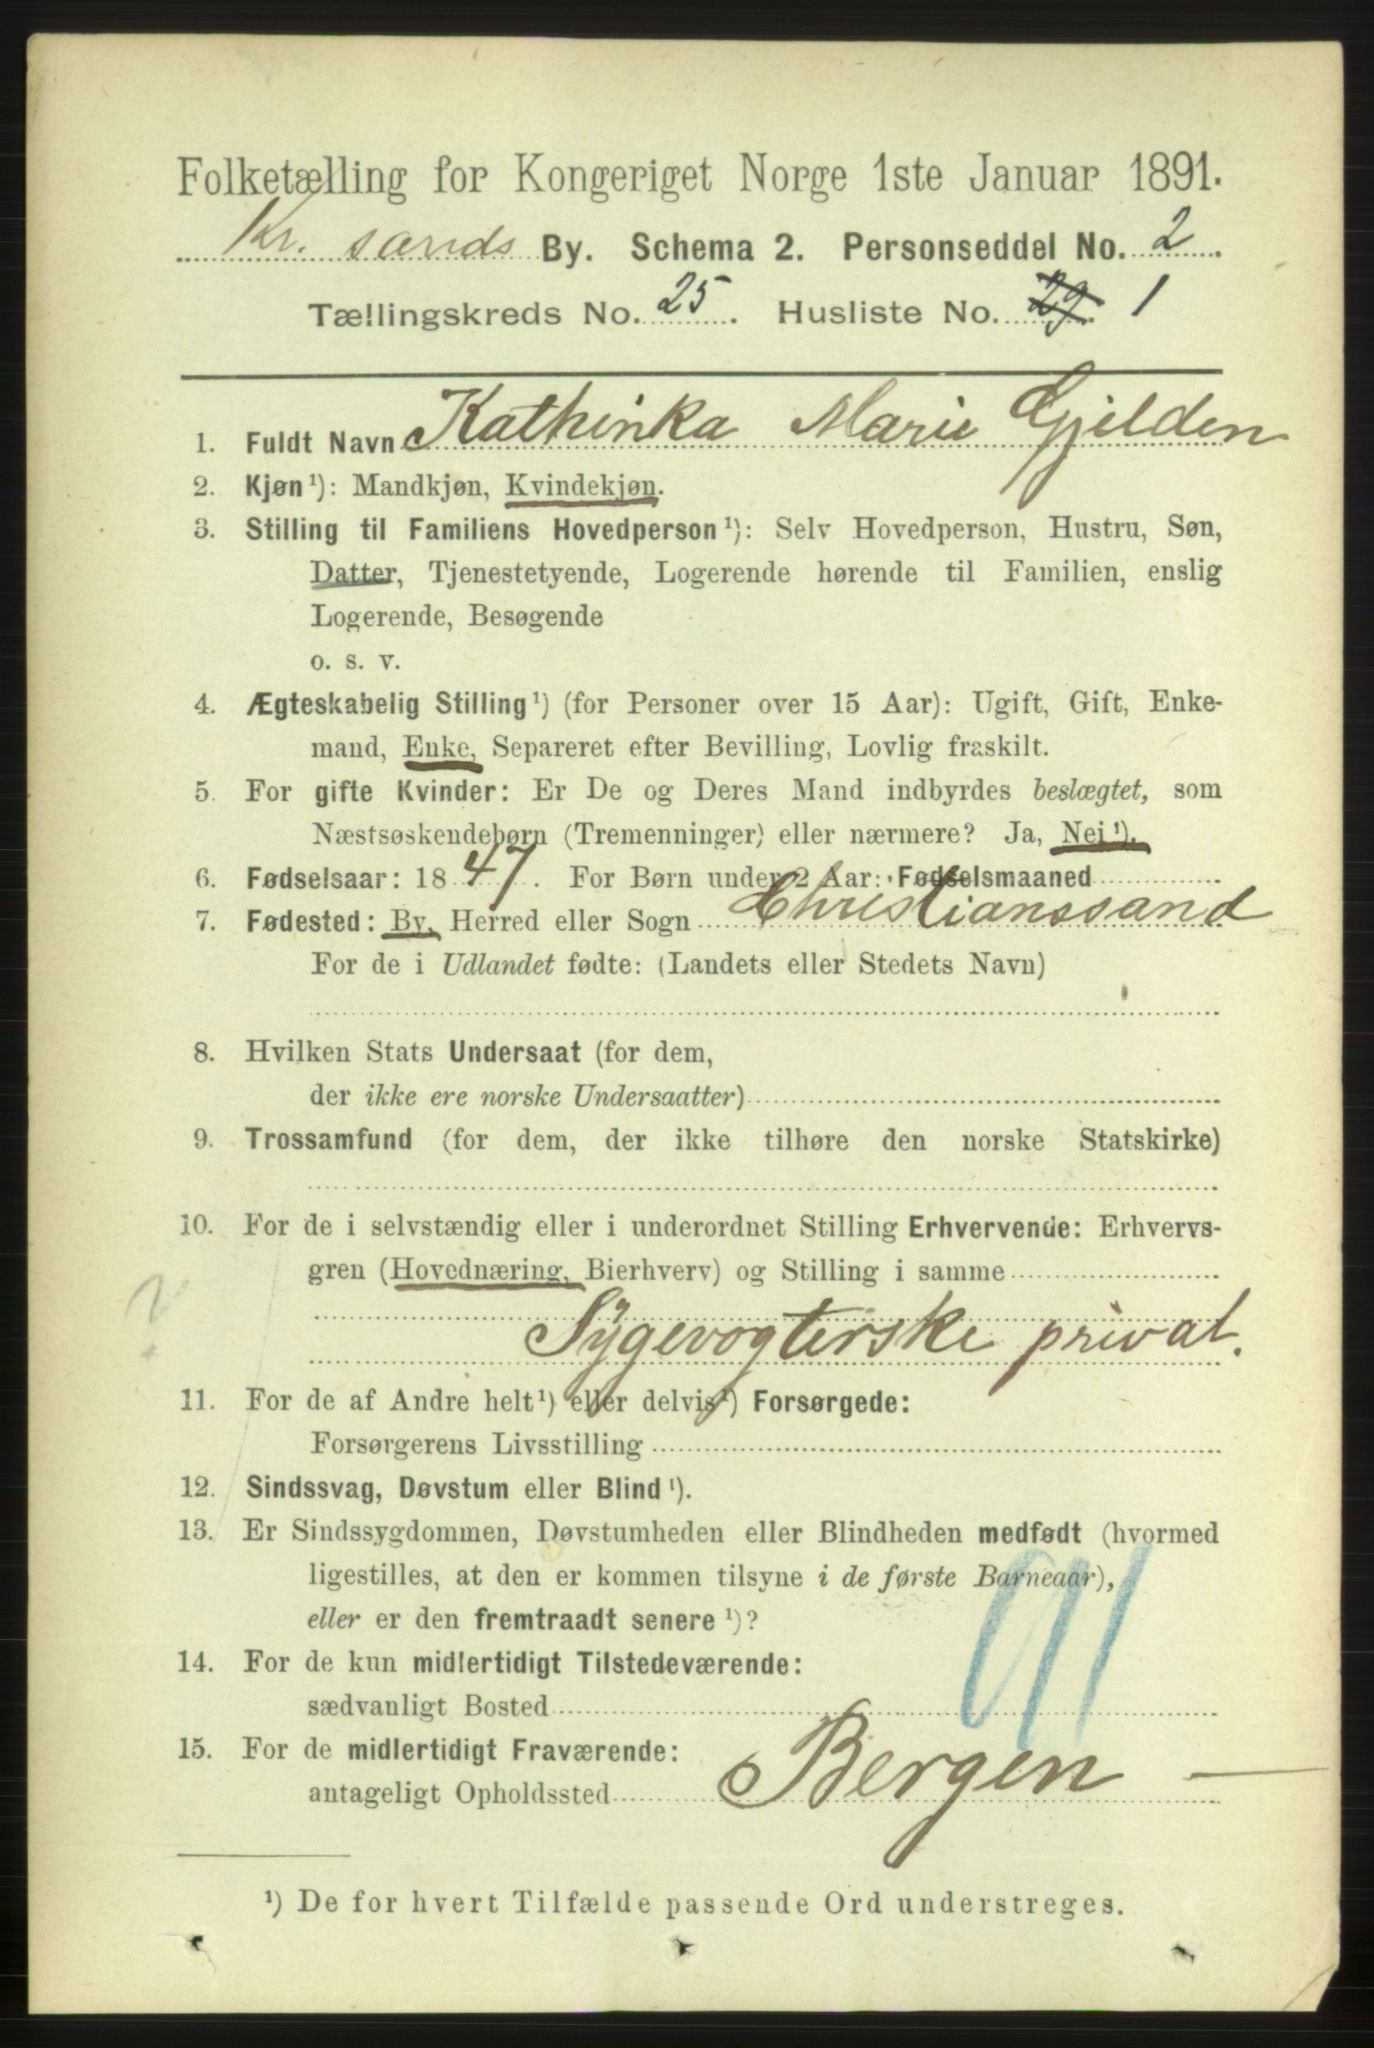 Folketælling for Kongeriget Norge 1ste Januar 1891.
Kr. sands By. Schema 2. Personseddel No. 2
Tællingskreds No. 25. Husliste No. 29 1
1. Fuldt Navn Kathinka Marie Gjelden
2. Kjøn¹): Mandkjøn, Kvindekjøn.
3. Stilling til Familiens Hovedperson¹): Selv Hovedperson, Hustru, Søn,
Datter, Tjenestetyende, Logerende hørende til Familien, enslig
Logerende, Besøgende
o. s. v.
4. Ægteskabelig Stilling¹) (for Personer over 15 Aar): Ugift, Gift, Enke-
mand, Enke, Separeret efter Bevilling, Lovlig fraskilt.
5. For gifte Kvinder: Er De og Deres Mand indbyrdes beslægtet, som
Næstsøskendebørn (Tremenninger) eller nærmere? Ja, Nei¹).
6. Fødselsaar: 1847. For Børn under 2 Aar: Fødselsmaaned
7. Fødested: By, Herred eller Sogn Christianssand
For de i Udlandet fødte: (Landets eller Stedets Navn)
8. Hvilken Stats Undersaat (for dem,
der ikke ere norske Undersaatter)
9. Trossamfund (for dem, der ikke tilhøre den norske Statskirke)
10. For de i selvstændig eller i underordnet Stilling Erhvervende: Erhvervs-
gren (Hovednæring, Bierhverv) og Stilling i samme
?
Sygevogterske privat.
11. For de af Andre helt¹) eller delvis¹) Forsørgede:
Forsørgerens Livsstilling
12. Sindssvag, Døvstum eller Blind¹).
13. Er Sindssygdommen, Døvstumheden eller Blindheden medfødt (hvormed
ligestilles, at den er kommen tilsyne i de første Barneaar),
eller er den fremtraadt senere¹)?
91
14. For de kun midlertidigt Tilstedeværende:
sædvanligt Bosted
15. For de midlertidigt Fraværende:
antageligt Opholdssted Bergen —
¹) De for hvert Tilfælde passende Ord understreges.